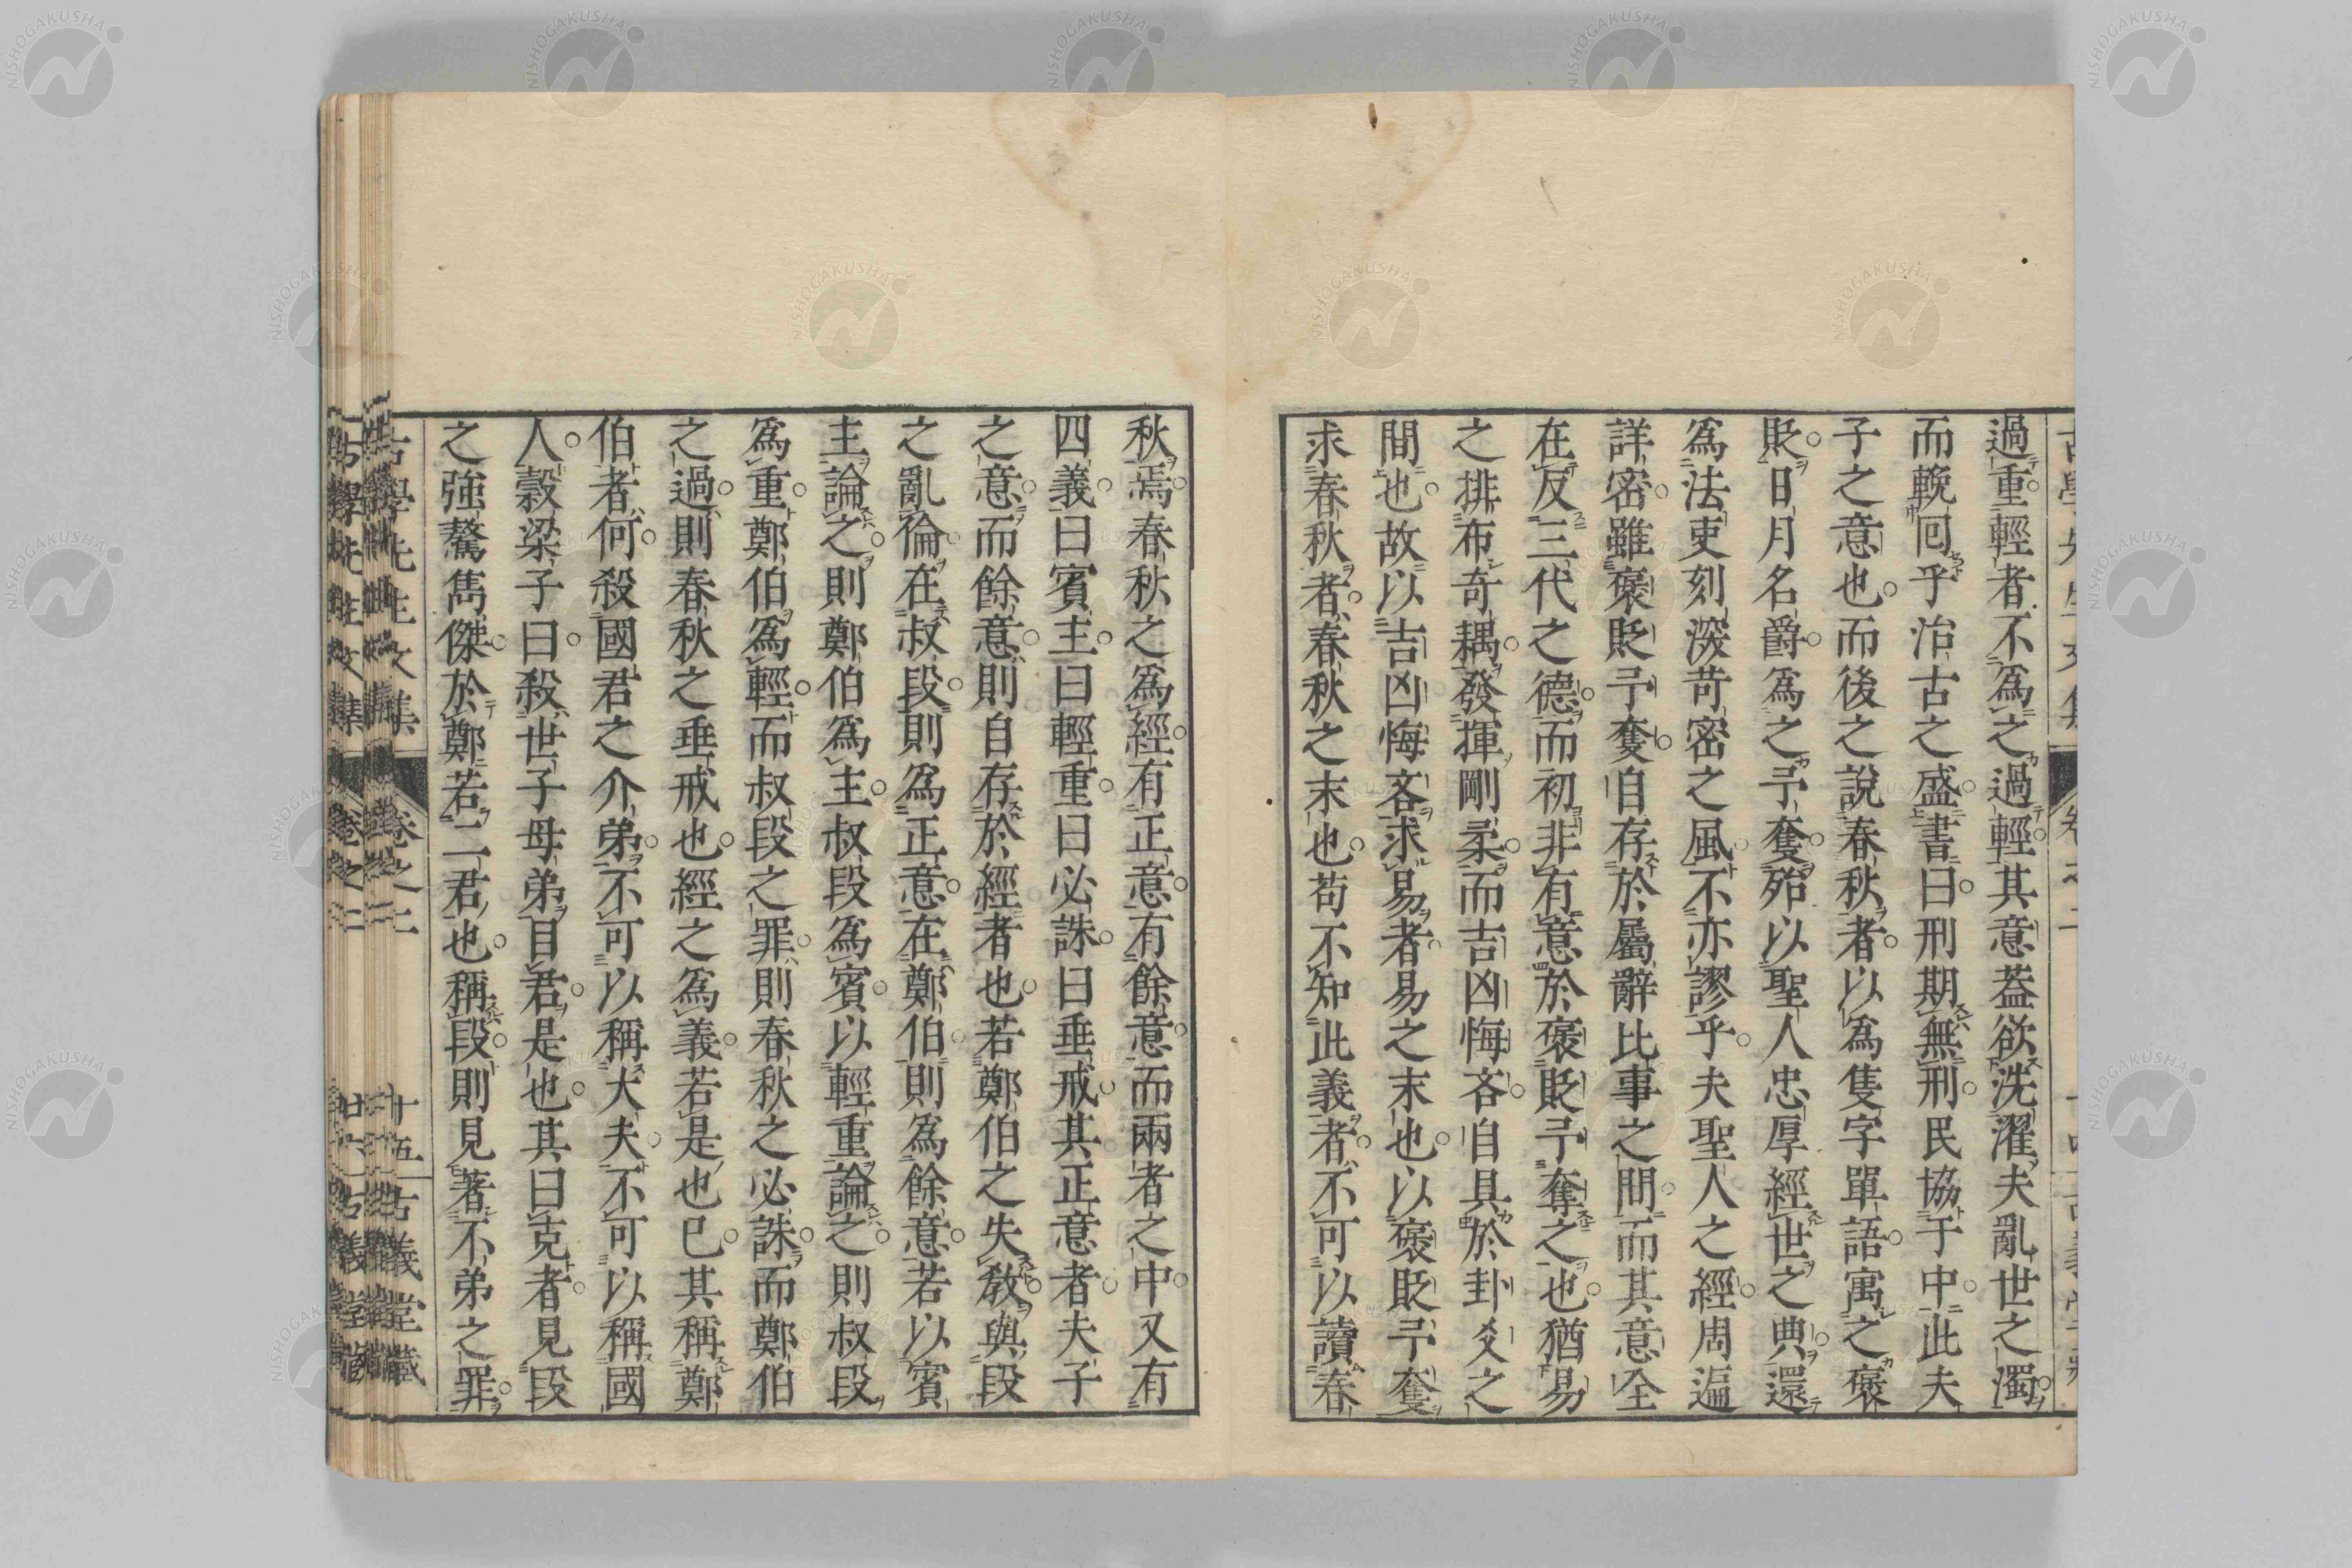 過重輕者不爲之過輕其意葢欲洗濯夫亂世之濁
而輓囘乎治古之盛書曰刑期無刑民協于中此夫
子之意也而後之說春秋者以爲隻字單語寓之褒
貶日月名爵爲之予奪殆以聖人忠厚經世之典還
爲法吏刻深苛密之風不亦謬乎夫聖人之經周遍
詳密雖褒貶予奪自存於屬辭比事之間而其意全
在反三代之德而初非有意於褒貶予奪之也猶易
之排布奇耦發揮剛柔而吉凶悔吝自具於卦爻之
間也故以吉凶悔吝求易者易之末也以褒貶予奪
求春秋者春秋之末也苟不知此義者不可以讀春
秋焉春秋之爲經有正意有餘意而兩者之中又有
四義曰賓主曰輕重曰必誅曰垂戒其正意者夫子
之意而餘意則自存於經者也若鄭伯之失教與段
之亂倫在叔段則爲正意在鄭伯則爲餘意若以賓
主論之則鄭伯爲主叔段爲賓以輕重論之則叔段
爲重鄭伯爲輕而叔段之罪則春秋之必誅而鄭伯
之過則春秋之垂戒也經之爲義若是也已其稱鄭
伯者何殺國君之介弟不可以稱大夫不可以稱國
人穀梁子曰殺世子母弟目君是也其曰克者見段
之強驁雋傑於鄭若二君也稱段則見著不弟之罪
古學先生文集 卷之二 十五 古義堂藏